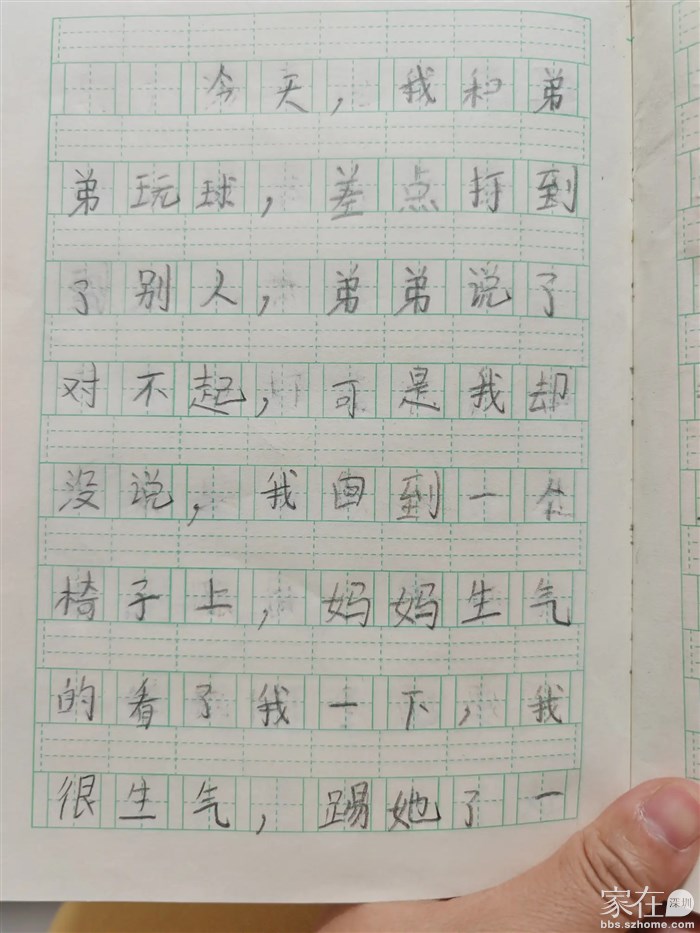 今天，我和弟
弟玩球，差点打到
了别人，弟弟说了
对不起，可是我却
没说，我回到一个
椅子上，妈妈生气
的看了我一下，我
很生气，踢她了一
家在深圳
bbs.szhome.com